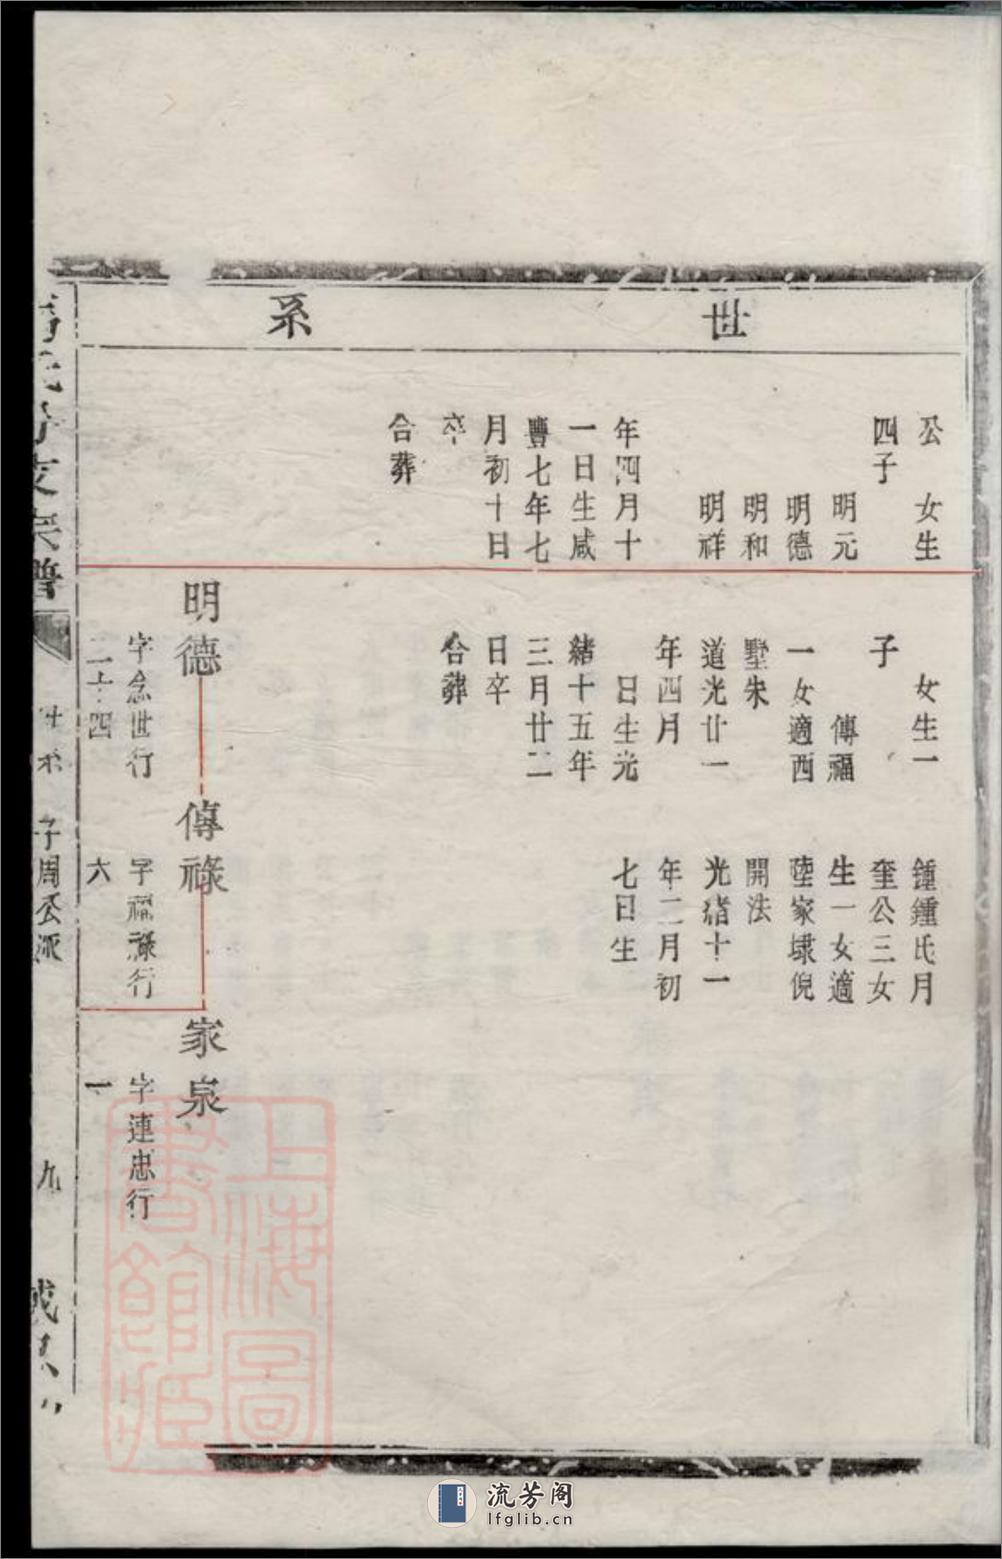 世系
公　女生
四子
明元
明德
明和
明祥
年四月十
一日生咸
豐七年七
月初十日
卒
合葬
女生一
子
傳福
一女適西
墅朱
道光廿一
年四月
日生光
緒十五年
三月廿二
日卒
合葬
鍾鍾氏月
奎公三女
生一女適
陸家埭倪
開法
光緒十一
年二月初
七日生
明德
字念世行
二十四
傳祿
字福祿行
六
家泉
字連忠行
一
氏分支宗譜
世系
子周公派
九
上海圖書館藏
流芳阁
lfglib.cn